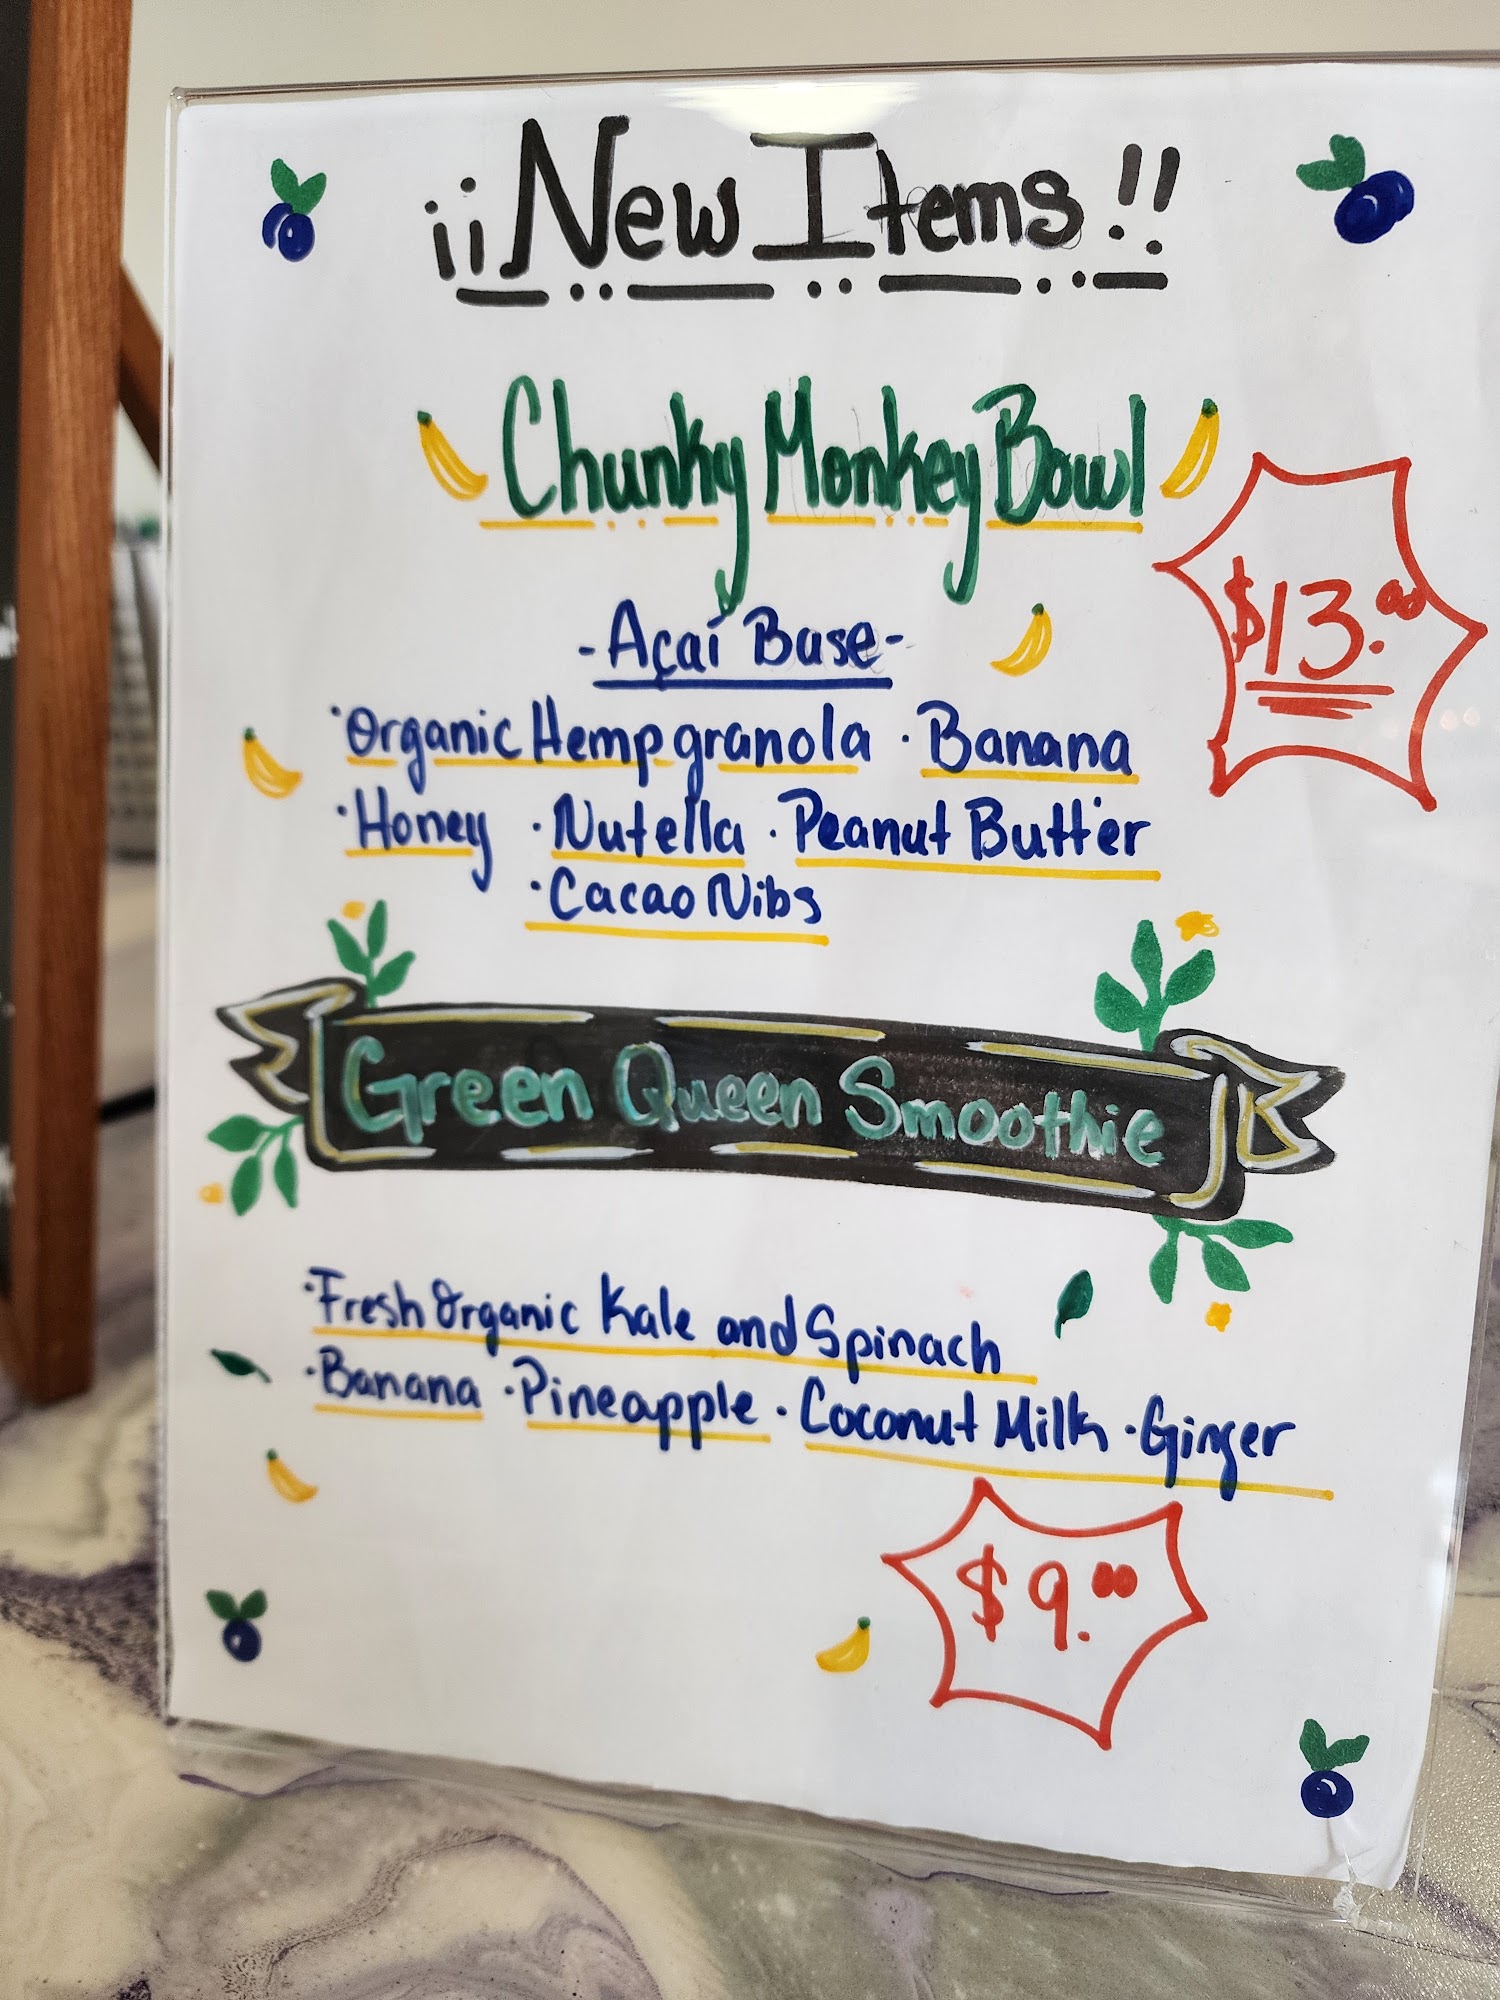 ¡¡New Items!!
Chunky Monkey Bowl
$13.00
-Açaí Base-
·Organic Hemp granola ·Banana
·Honey ·Nutella ·Peanut Butter
·Cacao Nibs
Green Queen Smoothie
·Fresh Organic Kale and Spinach
·Banana ·Pineapple ·Coconut Milk ·Ginger
$9.00